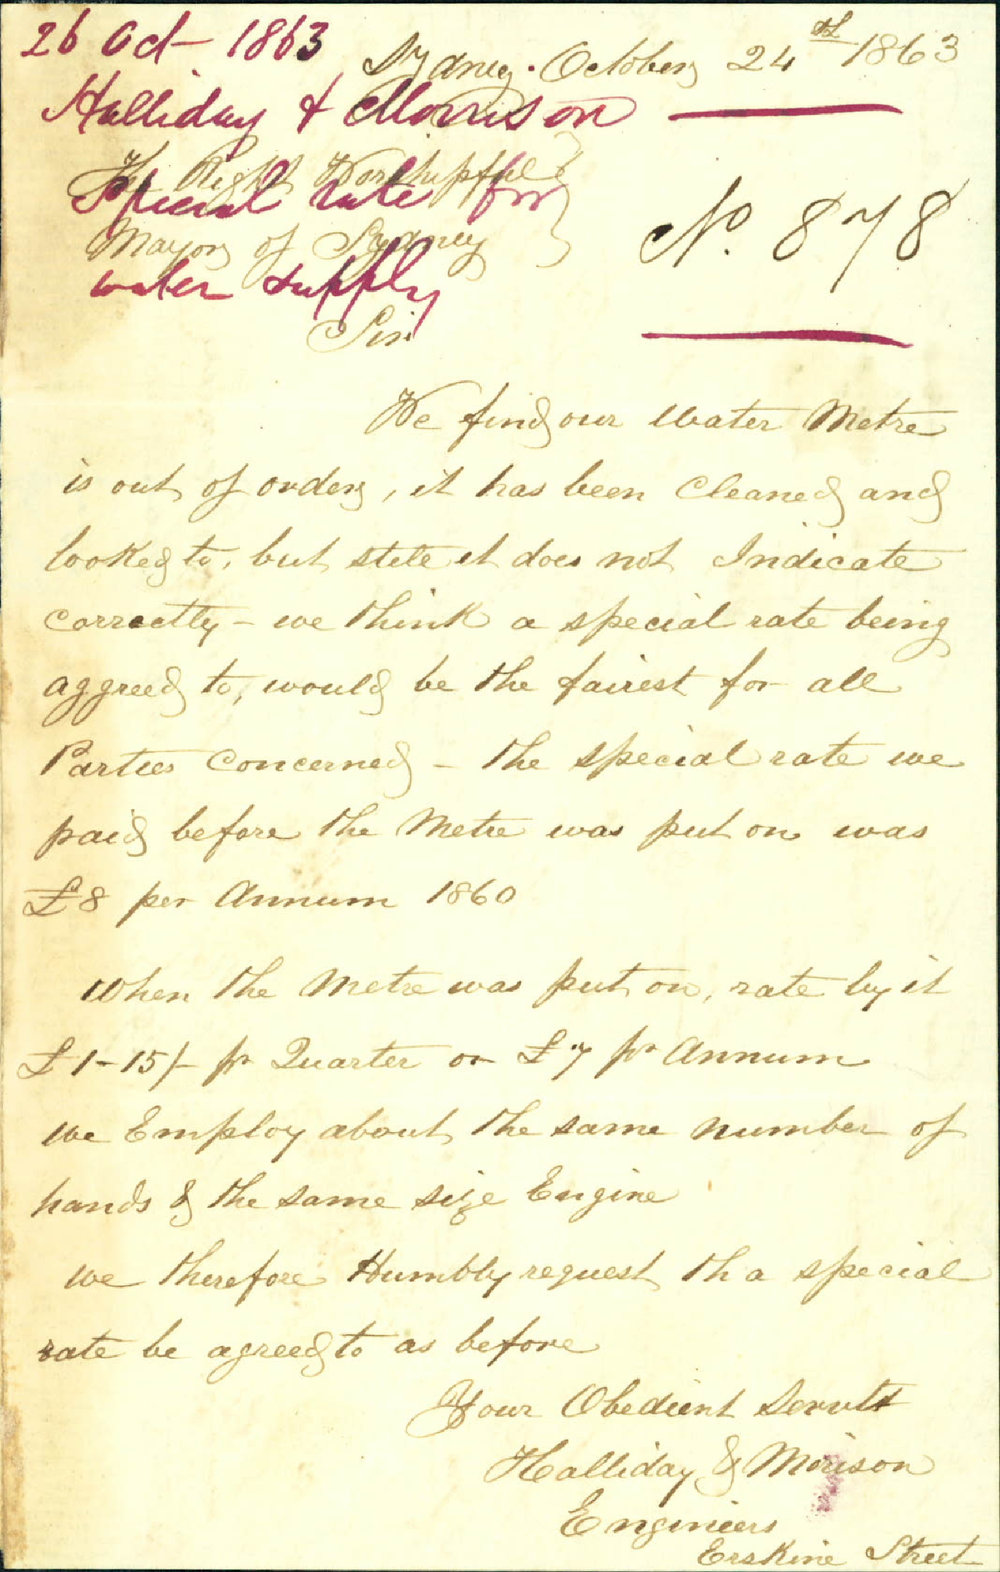 26 Oct 1863
Sydney. October 24th 1863
Halliday & Morrison
The Right Worshipful
Special rate for
Mayor of Sydney
water supply
No. 878
Sir
We find our Water Metre
is out of order, it has been Cleaned and
looked to, but stele it does not Indicate
Correctly - we think a special rate being
aggreed to, would be the fairest for all
Parties Concerned - the special rate we
paid before the Metre was put on was
£8 per Annum 1860
When the Metre was put on, rate by it
£1-15/- pr Quarter or £7 pr Annum
we Employ about the same number of
hands & the same size Engine
we therefore Humbly request th a special
rate be agreed to as before
Your Obedient Servts
Halliday & Morison
Engineers
Erskine Street